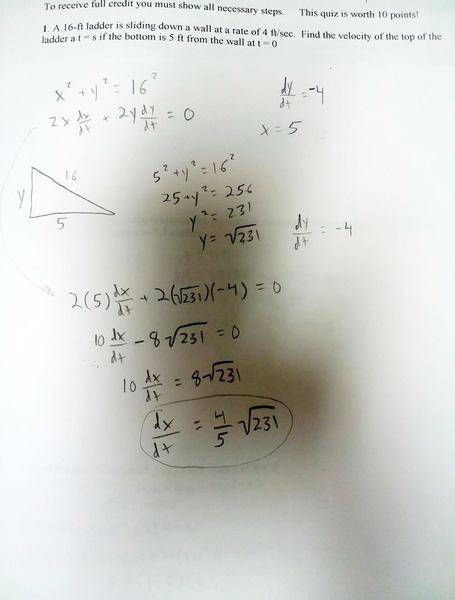 To receive full credit you must show all necessary steps. This quiz is worth 10 points!
1. A 16-ft ladder is sliding down a wall at a rate of 4 ft/sec. Find the velocity of the top of the
ladder a t = s if the bottom is 5 ft from the wall at t = 0
x² + y² = 16²
2x dx/dt + 2y dy/dt = 0
dy/dt = -4
x = 5
16
y
5
5² + y² = 16²
25 + y² = 256
y² = 231
y = √231
dy/dt = -4
2(5) dx/dt + 2(√231)(-4) = 0
10 dx/dt - 8√231 = 0
10 dx/dt = 8√231
dx/dt = 4/5 √231